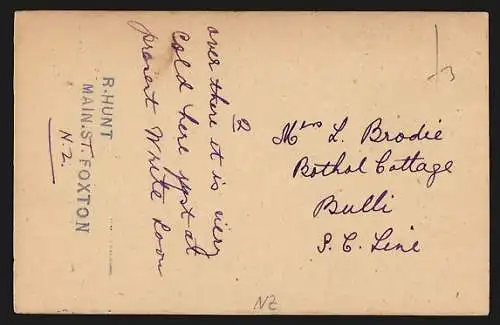 2
over there it is very
Cold here just at
present Write Soon
Mrs L. Brodie
Bothol Cottage
Bulli
S. C. Line
R. HUNT
MAIN. ST. FOXTON
N. Z.
NZ